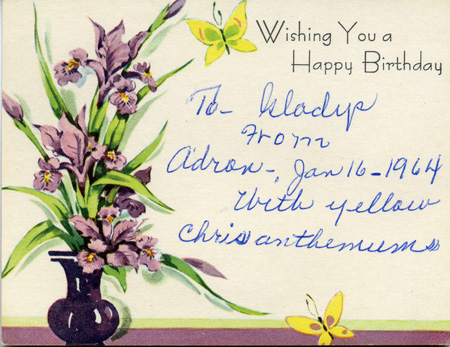 Wishing You a
Happy Birthday
To- Gladys
From
Adron-, Jan 16-1964
With yellow
Chrisanthemums